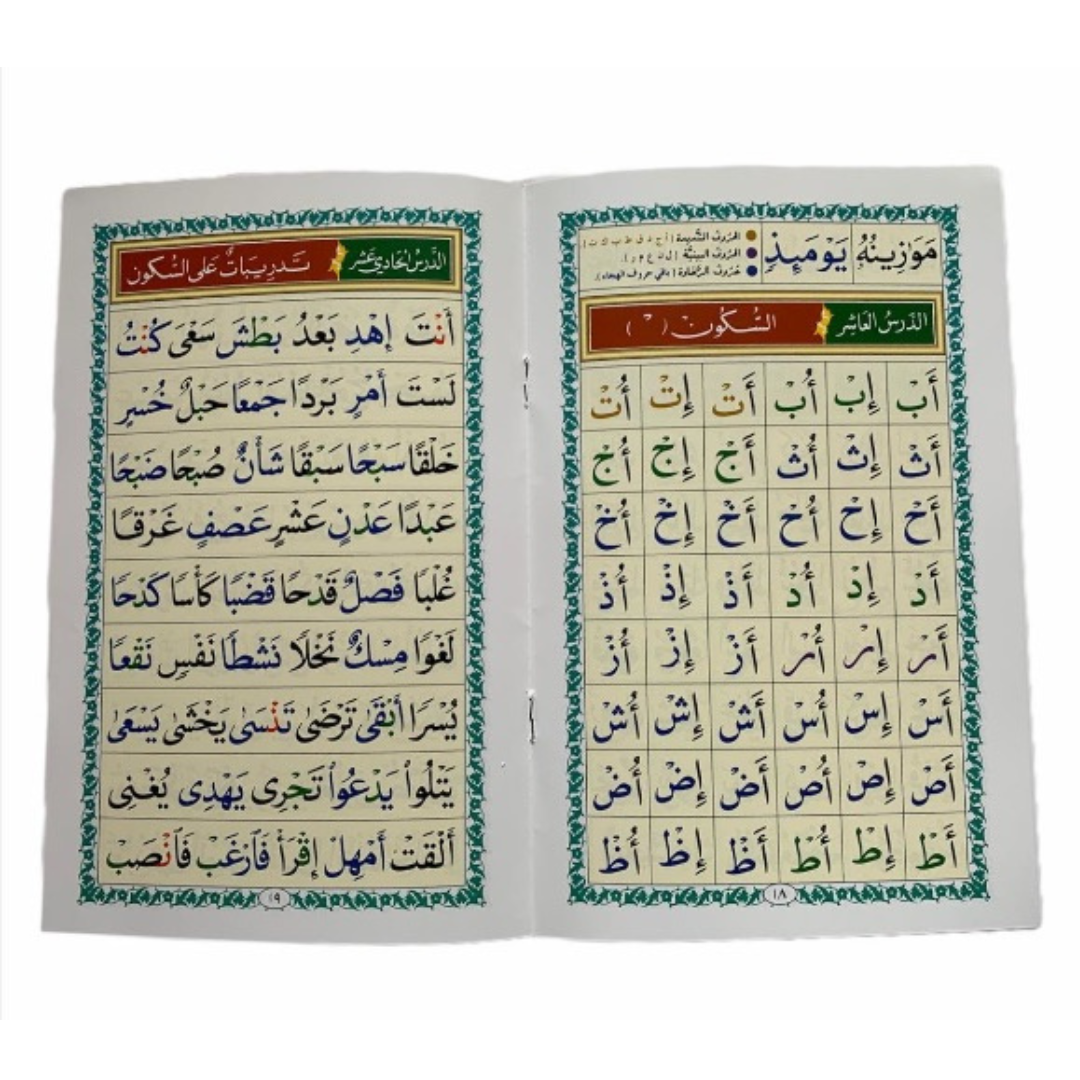 مَوَازِينُهُۥ يَوْمَئِذٍ
الحروف الشديدة (أ ج د ق ط ب ك ت).
الحروف البينية (ل ن ع م ر).
حروف الرخاوة (باقي حروف الهجاء).
الدَّرسُ العَاشِر السُّكُون ( ْ )
أَبْ إِبْ أُبْ أَتْ إِتْ أُتْ
أَثْ إِثْ أُثْ أَجْ إِجْ أُجْ
أَحْ إِحْ أُحْ أَخْ إِخْ أُخْ
أَدْ إِدْ أُدْ أَذْ إِذْ أُذْ
أَرْ إِرْ أُرْ أَزْ إِزْ أُزْ
أَسْ إِسْ أُسْ أَشْ إِشْ أُشْ
أَصْ إِصْ أُصْ أَضْ إِضْ أُضْ
أَطْ إِطْ أُطْ أَظْ إِظْ أُظْ
١٨
الدَّرسُ الحَادِي عَشَر تَدرِيبَاتٌ عَلى السُّكُون
أَنْتَ إِهْدِ بَعْدُ بَطْشَ سَعْىَ كُنْتُ
لَسْتَ أَمْرٍ بَرْدًا جَمْعًا حَبْلٌ خُسْرٍ
خَلْقًا سَبْحًا سَبْقًا شَأْنٌ صُبْحًا ضَبْحًا
عَبْدًا عَدْنٍ عَشْرٍ عَصْفٍ غَرْقًا
غُلْبًا فَصْلٌ قَدْحًا قَضْبًا كَأْسًا كَدْحًا
لَغْوًا مِسْكٌ نَخْلًا نَشْطًا نَفْسٍ نَقْعًا
يُسْرًا أَبْقَىٰ تَرْضَىٰ تَنْسَىٰ يَخْشَىٰ يَسْعَىٰ
يَتْلُواْ يَدْعُواْ تَجْرِى يَهْدِى يُغْنِى
أَلْقَتْ أَمْهِلْ إِقْرَأْ فَٱرْغَبْ فَٱنْصَبْ
١٩